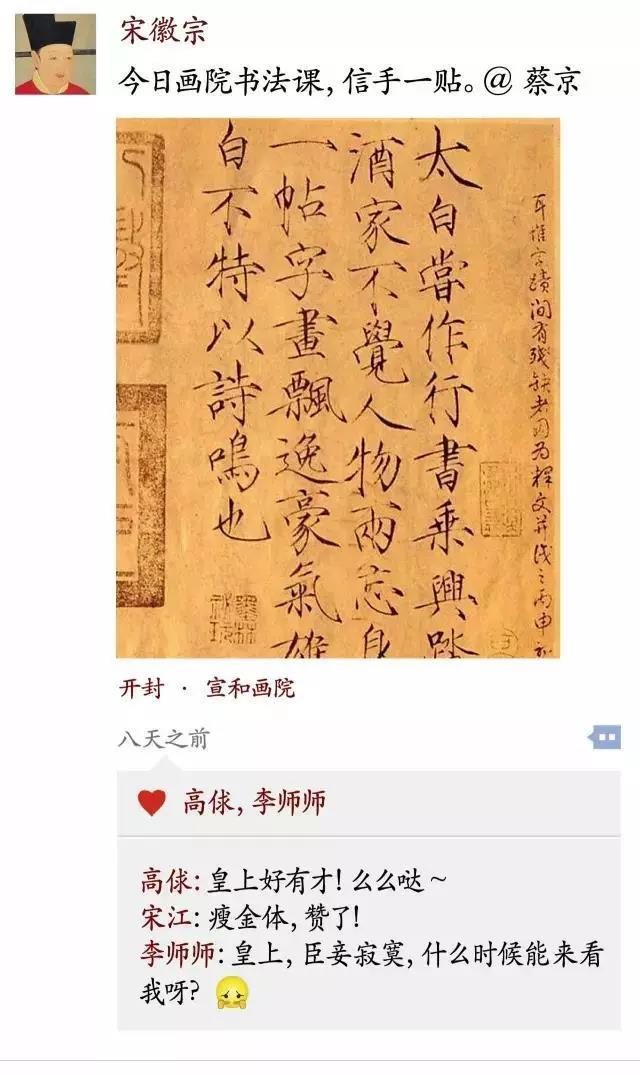 宋徽宗
今日画院书法课，信手一贴。@ 蔡京
字蹟間有殘缺
为释文并识之丙申
太白嘗作行書乘興踏
酒家不覺人物兩忘身
一帖字畫飄逸豪氣雄
白不特以詩鳴也
开封 · 宣和画院
八天之前
高俅，李师师
高俅：皇上好有才！么么哒~
宋江：瘦金体，赞了！
李师师：皇上，臣妾寂寞，什么时候能来看
我呀？